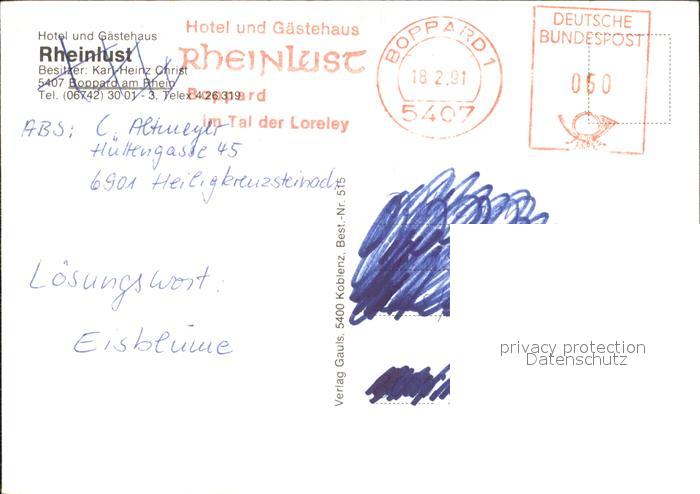 Hotel und Gästehaus
Rheinlust
Besitzer: Karl Heinz Christ
5407 Boppard am Rhein
Tel. (06742) 30 01 - 3, Telex 4 26 319
Hotel und Gästehaus
Rheinlust
Boppard
im Tal der Loreley
BOPPARD 1
18.2.91
5407
DEUTSCHE
BUNDESPOST
060
ABS: C. Altmeyer
Hüttengasse 45
6901 Heiligkreuzsteinach
Lösungswort:
Eisblume
Verlag Gauls, 5400 Koblenz, Best.-Nr. 515
privacy protection
Datenschutz